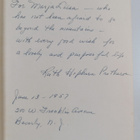 For
who
has not been afraid to go
beyond the mountains -
with every good wish for
a lively and purposeful life
Ruth Stephens
June 18 - 1957
Franklin Avenue
Beverly, N. J.